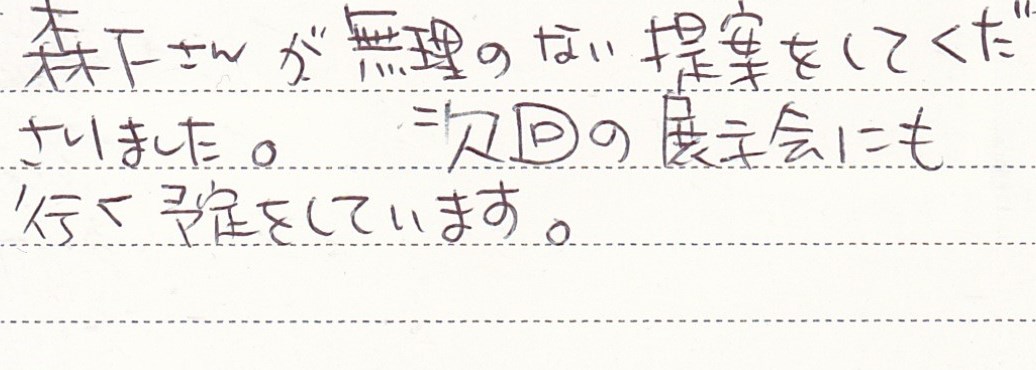 森下さんが無理のない提案をしてくだ
さいました。 次回の展示会にも
行く予定をしています。